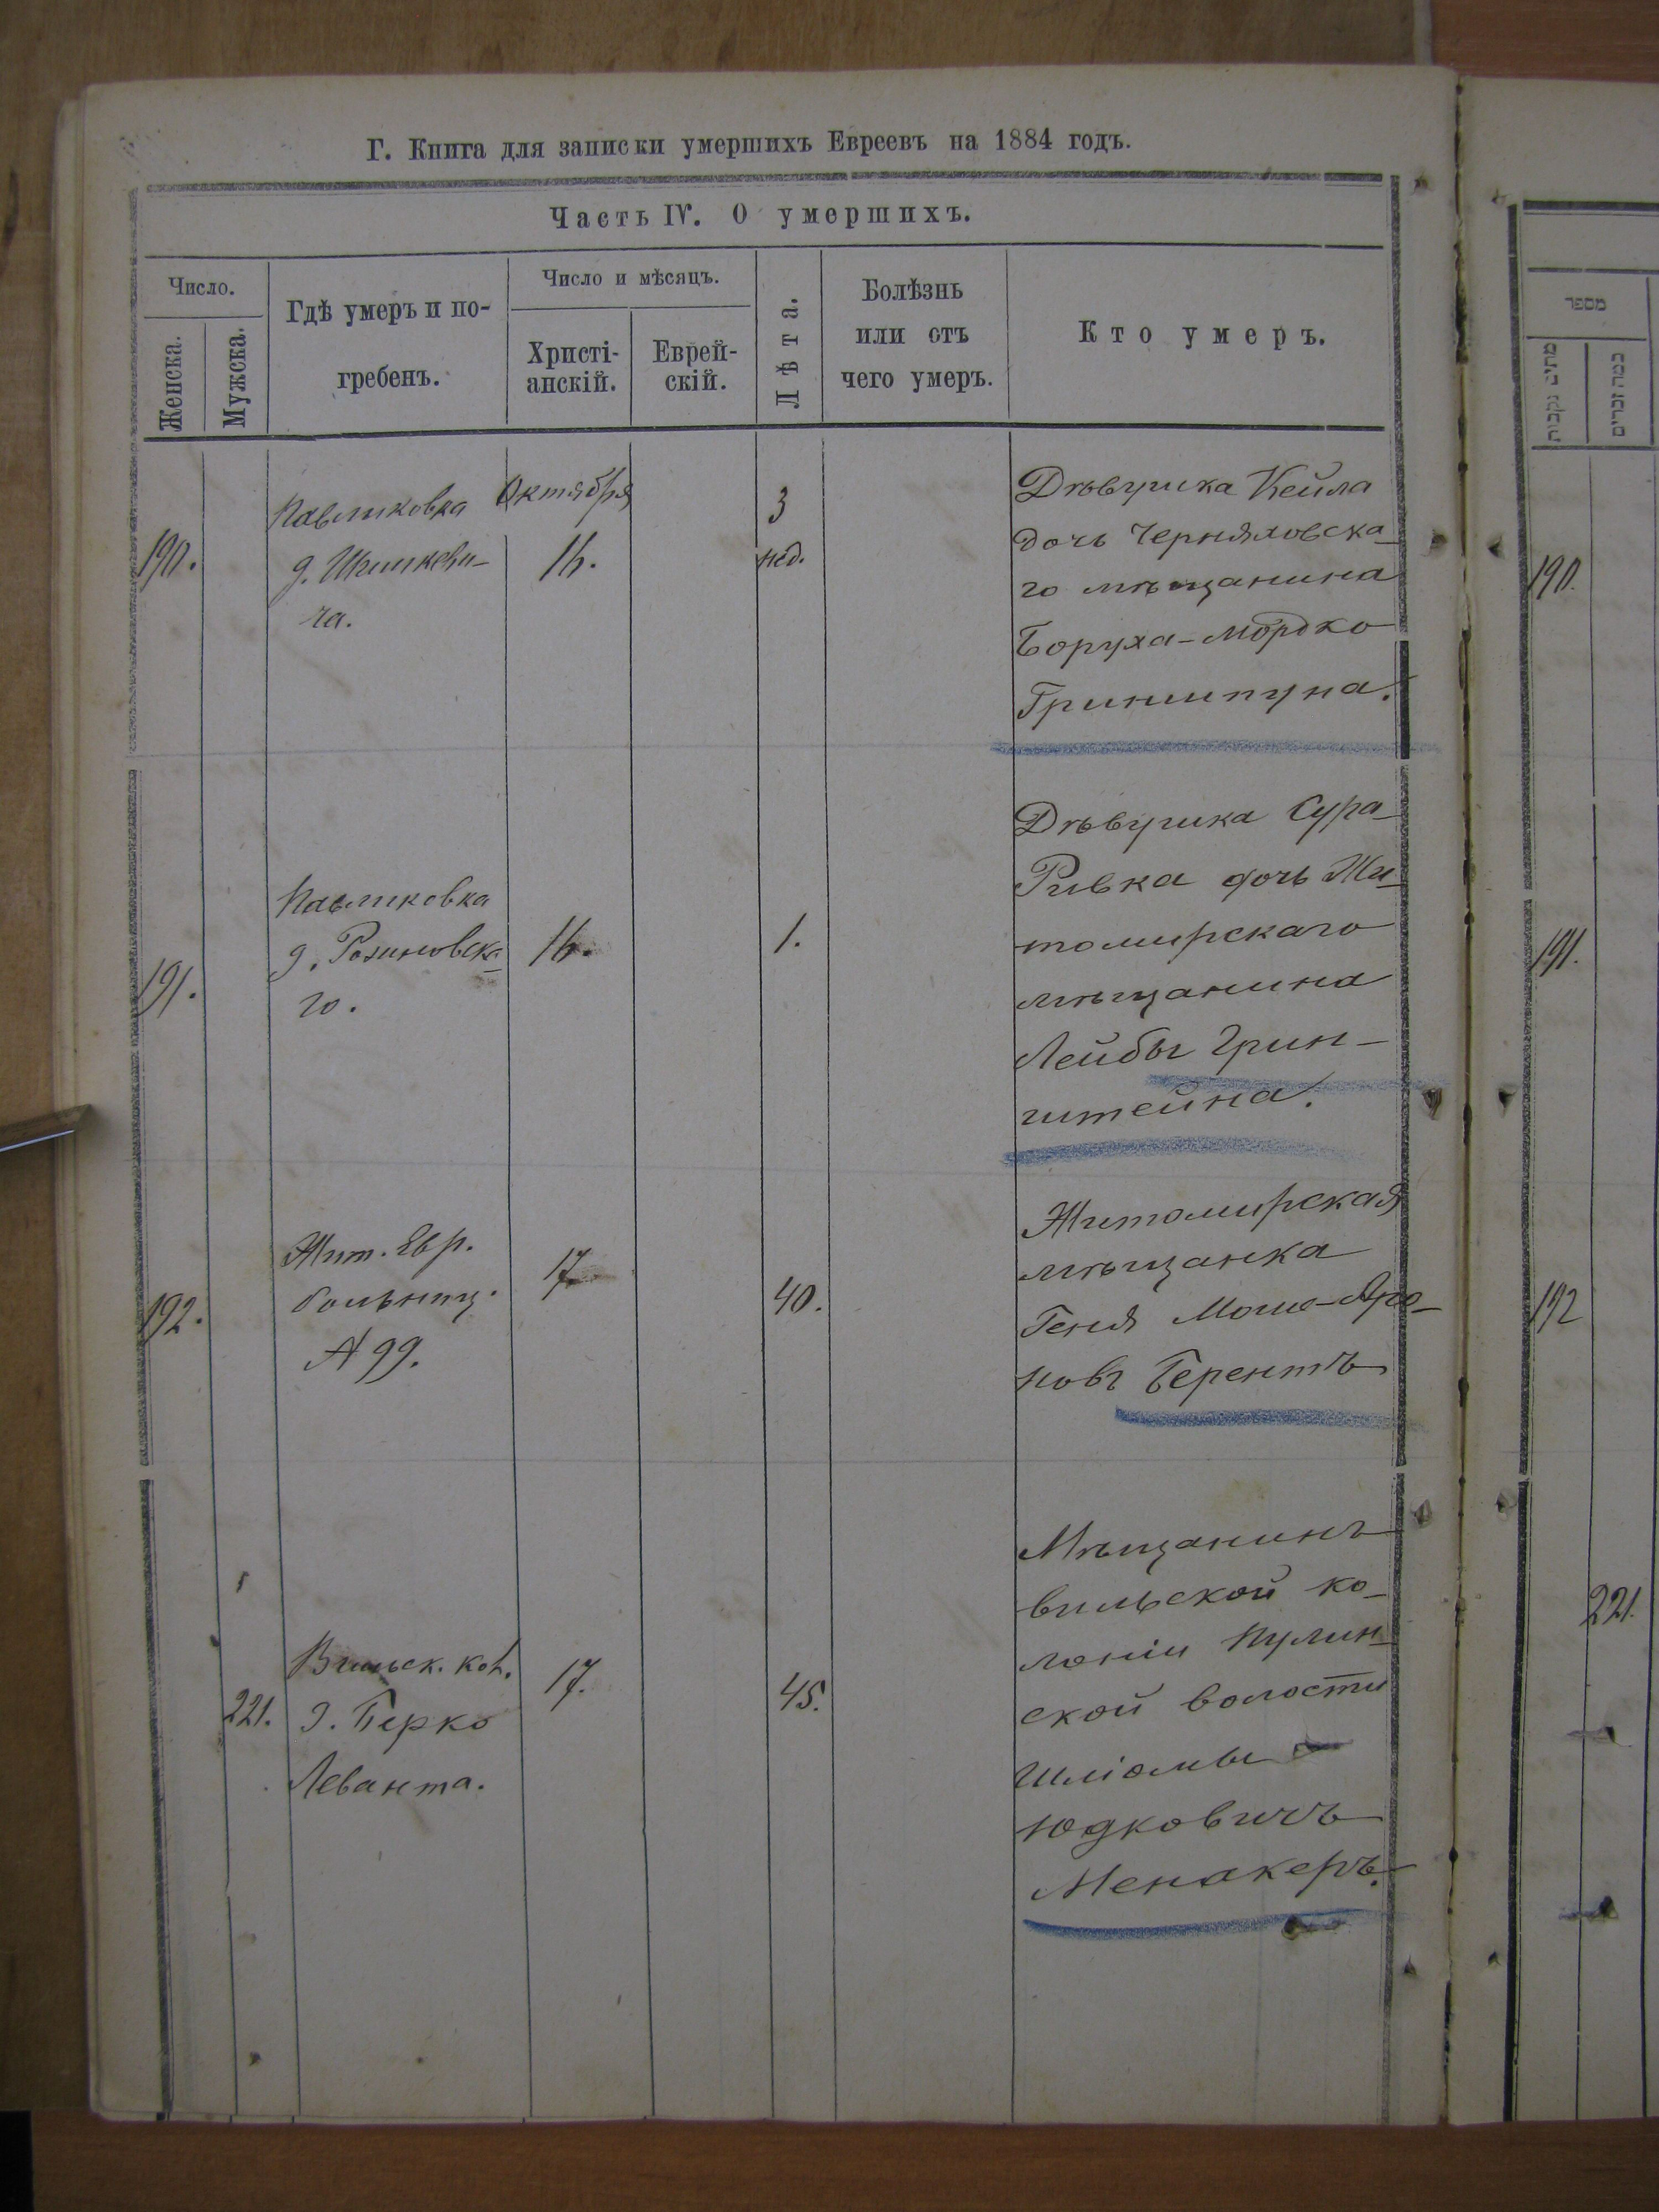 Г. Книга для записки умершихъ Евреевъ на 1884 годъ.
Часть IV. О умершихъ.
Число.
Женска.
Мужска.
Гдѣ умеръ и по-
гребенъ.
Число и мѣсяцъ.
Христі-
анскій.
Еврей-
скій.
Лѣта.
Болѣзнь
или отъ
чего умеръ.
Кто умеръ.
190.
Павликовка
д.
ча.
Октября
16.
3
нед.
Дѣвушка Кейла
дочь Черняховска-
го мѣщанина
Боруха-Мордко
Гриншпуна.
191.
Павликовка
д. Розиновска-
го.
16.
1.
Дѣвушка Сура-
Ривка дочь Жи-
томирскаго
мѣщанина
Лейбы Грин-
штейна.
192.
Жит. Евр.
больниц.
17
40.
Житомирская
мѣщанка
Геня Мошо-Аро-
нов Берентъ
221.
Вильск. кол.
д. Берко
Леванта.
17.
45.
Мѣщанинъ
вильской ко-
лоніи Пулин-
ской волости
Шліомы
Юдковичъ
Менакеръ.
מספר
מתים נקבות
כמה זכרים
190.
191.
192
221.